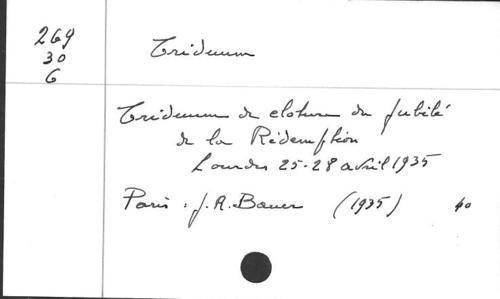 269
30
6
Triduum
Triduum de cloture du Jubilé
de la Rédemption
Lourdes 25-28 avril 1935
Paris : J. A. Bauer (1935) 40